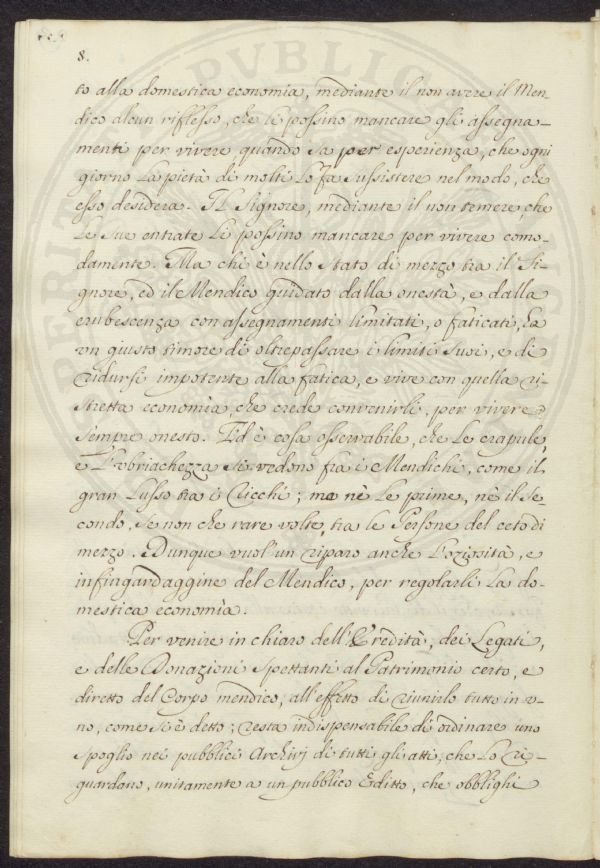 8.
to alla domestica economia, mediante il non avere il Men-
dico alcun riflesso, che le possino mancare gli assegna-
menti per vivere quando sa per esperienza, che ogni
giorno la pietà di molti lo fa sussistere nel modo, che
esso desidera. Il Signore, mediante il non temere, che
le sue entrate le possino mancare per vivere como-
damente. Ma chi è nello stato di mezzo tra il Si-
gnore, ed il Mendico guidato dalla onestà, e dalla
erubescenza con assegnamenti limitati, o faticati, ha
un giusto timore di oltrepassare i limiti suoi, e di
ridursi impotente alla fatica, e vive con quella ri-
stretta economia, che crede convenirli, per vivere
sempre onesto. Ed è cosa osservabile, che le crapule,
e l'ubriachezza si vedono fra i Mendichi, come il
gran lusso tra i Ricchi; ma nè le prime, nè il se-
condo, se non che rare volte, tra le Persone del ceto di
mezzo. Dunque vuol'un riparo anche l'oziosità, e
infingardaggine del Mendico, per regolarli la do-
mestica economia.
Per venire in chiaro dell'Eredità, dei Legati,
e delle Donazioni spettanti al Patrimonio certo, e
diretto del Corpo mendico, all'effetto di riunirlo tutto in u-
no, come si è detto; resta indispensabile di ordinare uno
spoglio nei pubblici Archivj di tutti gli atti, che lo ri-
guardano, unitamente a un pubblico Editto, che obblighi